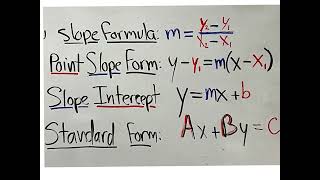 Slope Formula: m = y₂ - y₁ / x₂ - x₁
Point Slope Form: y - y₁ = m(x - x₁)
Slope Intercept y = mx + b
Standard Form: Ax + By = C